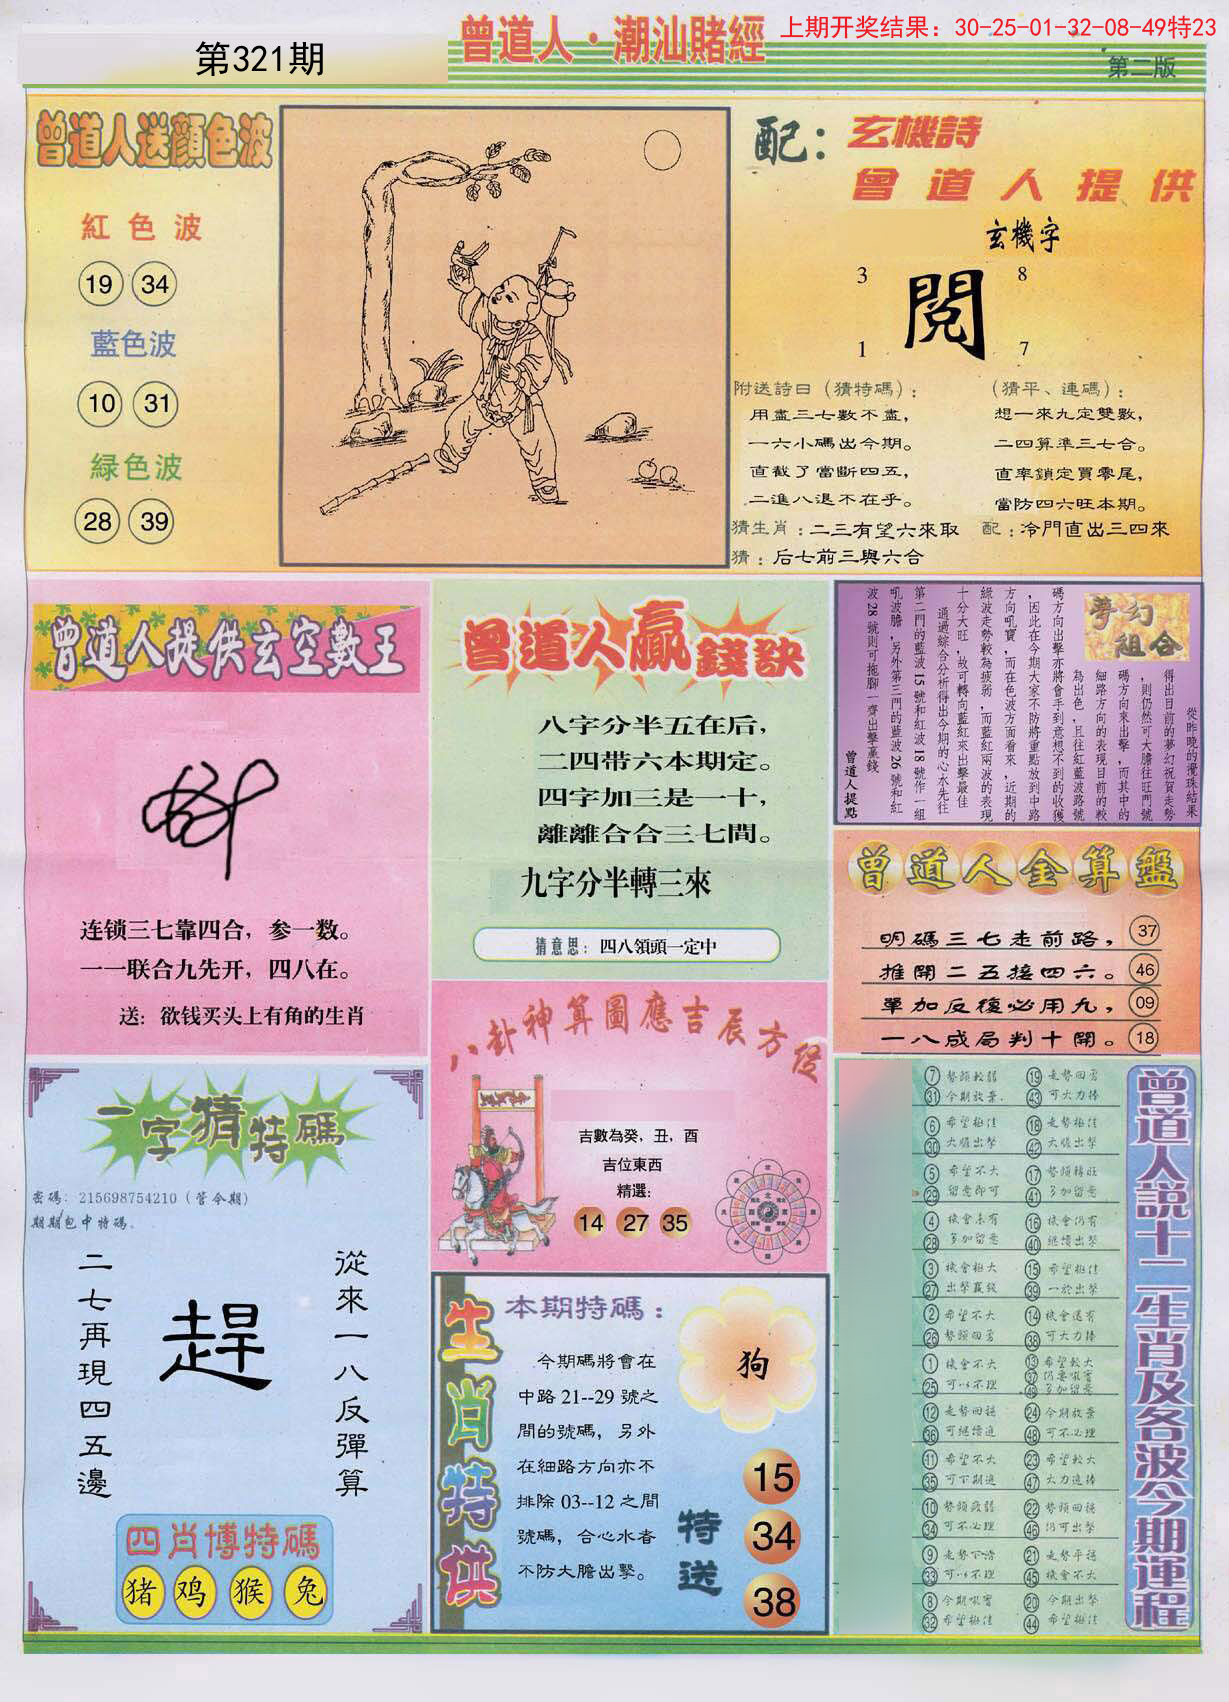 曾道人·潮汕賭經
上期开奖结果：30-25-01-32-08-49特23
第321期
第二版
曾道人送顏色波
紅色波
19 34
藍色波
10 31
緑色波
28 39
配：玄機詩
曾道人提供
玄機字
3 8
閱
1 7
附送詩曰（猜特碼）：
用盡三七數不盡，
一六小碼出今期。
直截了當斷四五，
二進八退不在乎。
（猜平、連碼）：
想一來九定雙數，
二四算準三七合。
直率鎖定買零尾，
當防四六旺本期。
猜生肖：二三有望六來取
配：冷門直出三四來
猜：后七前三與六合
曾道人提供玄空數王
连锁三七靠四合，参一数。
一一联合九先开，四八在。
送：欲钱买头上有角的生肖
曾道人贏錢訣
八字分半五在后，
二四带六本期定。
四字加三是一十，
離離合合三七間。
九字分半轉三來
猜意思：四八領頭一定中
夢幻組合
從昨晚的攪珠結果
得出目前的夢幻祝賀走勢
，則仍然可大膽往旺門號
碼方向來出擊，而其中的
細路方向的表現目前的較
為出色，且往紅藍波路號
碼方向出擊亦將會手到意想不到的收獲
，因此在今期大家不防將重點放到中路
方向吼寶，而在色波方面看來，近期的
綠波走勢較為疲弱，而藍紅兩波的表現
十分大旺，故可轉向藍紅來出擊最佳
通過綜合分析得出今期的心水先往
第二門的藍波15號和紅波18號作一組
吼波膽，另外第三門的藍波26號和紅
波28號則可拖腳一齊出擊贏錢
曾道人提點
曾道人金算盤
明碼三七走前路， 37
推開二五接四六。 46
單加反復必用九， 09
一八成局判十開。 18
八卦神算圖應吉辰方位
吉數為癸，丑，酉
吉位東西
精選：
14 27 35
一字猜特碼
密碼：215698754210（管令期）
期期包中特碼。
從來一八反彈算
趕
二七再現四五邊
四肖博特碼
猪 鸡 猴 兔
生肖特供
本期特碼：
今期碼將會在
中路21--29號之
間的號碼，另外
在細路方向亦不
排除03--12之間
號碼，合心水者
不防大膽出擊。
狗
特送
15
34
38
曾道人説十二生肖及各波今期運程
7 勢頭較弱 19 走勢回勇
31 今期放棄. 43 可大力捧
6 希望極佳 18 走勢極佳
30 大膽出擊 42 大膽出擊
5 希望不大 17 勢頭轉旺
29 留意即可 41 多加留意
4 機會未有 16 機會仍有
28 多加留意 40 繼續出擊
3 機會極大 15 希望極佳
27 出擊贏錢 39 一於出擊
2 希望不大 14 機會還有
26 勢頭回勇 38 可大力捧
1 機會不大 13 希望較大
37 仍要吼實
25 可以不理 49 多加留意
12 走勢回穩 24 今期放棄
36 可繼續追 48 可不必理
11 希望不大 23 希望較大
35 可下期追 47 大力追捧
10 勢頭疲弱 22 勢頭回穩
34 可不必理 46 仍可出擊
9 走勢下滑 21 走勢平穩
33 可以不理 45 機會不大
8 今期吼實 20 今期出擊
32 希望極佳 44 希望極佳